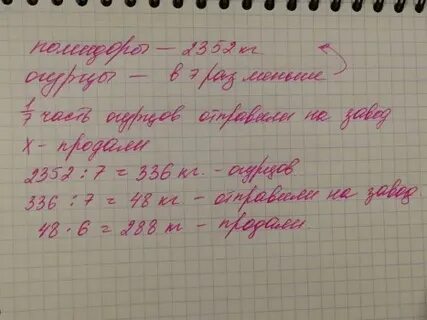 помидоры — 2352 кг
огурцы — в 7 раз меньше
1/7 часть огурцов отправили на завод
х - продали
2352 : 7 = 336 кг. - огурцов.
336 : 7 = 48 кг - отправили на завод.
48 · 6 = 288 кг - продали.